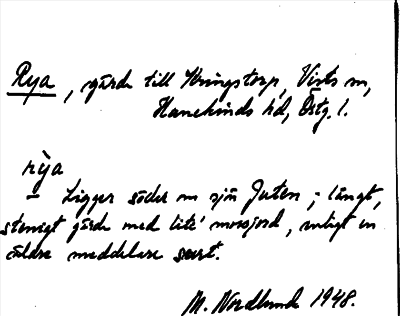 Rya, gärde till Kringstorp, Vists sn,
Hanekinds hd, Östg. l.
rỳa
– Ligger söder om sjön Juten; långt,
stenigt gärde med lite' mosjord, enligt en
äldre meddelare svart.
M. Nordlund 1948.